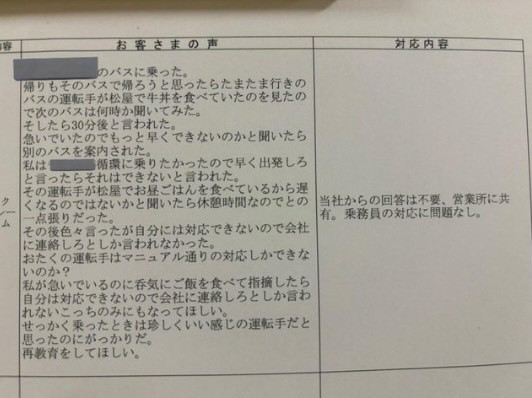 内容
お客さまの声
対応内容
クレーム
のバスに乗った。
帰りもそのバスで帰ろうと思ったらたまたま行きの
バスの運転手が松屋で牛丼を食べていたのを見たの
で次のバスは何時か聞いてみた。
そしたら30分後と言われた。
急いでいたのでもっと早くできないのかと聞いたら
別のバスを案内された。
私は 循環に乗りたかったので早く出発しろ
と言ったらそれはできないと言われた。
その運転手が松屋でお昼ごはんを食べているから遅
くなるのではないかと聞いたら休憩時間なのでとの
一点張りだった。
その後色々言ったが自分には対応できないので会社
に連絡しろとしか言われなかった。
おたくの運転手はマニュアル通りの対応しかできな
いのか？
私が急いでいるのに呑気にご飯を食べて指摘したら
自分は対応できないので会社に連絡しろとしか言わ
れないこっちのみにもなってほしい。
せっかく乗ったときは珍しくいい感じの運転手だと
思ったのにがっかりだ。
再教育をしてほしい。
当社からの回答は不要、営業所に共
有。乗務員の対応に問題なし。